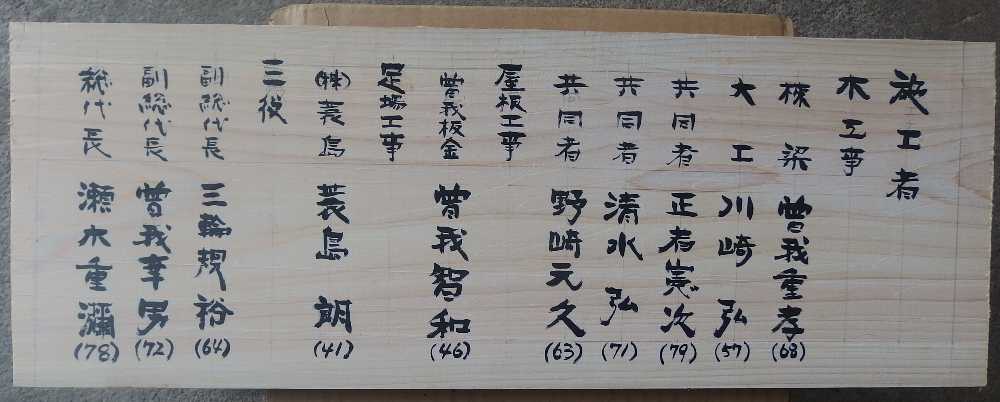 施工者
木工事
棟梁 曽我重孝(68)
大工 川崎弘(57)
共同者 正者憲次(79)
共同者 清水弘(71)
共同者 野崎元久(63)
屋根工事
曽我板金 曽我智和(46)
足場工事
(株)蓑島 蓑島朗(41)
三役
副総代長 三輪規裕(64)
副総代長 曽我幸男(72)
総代長 瀬木重彌(78)